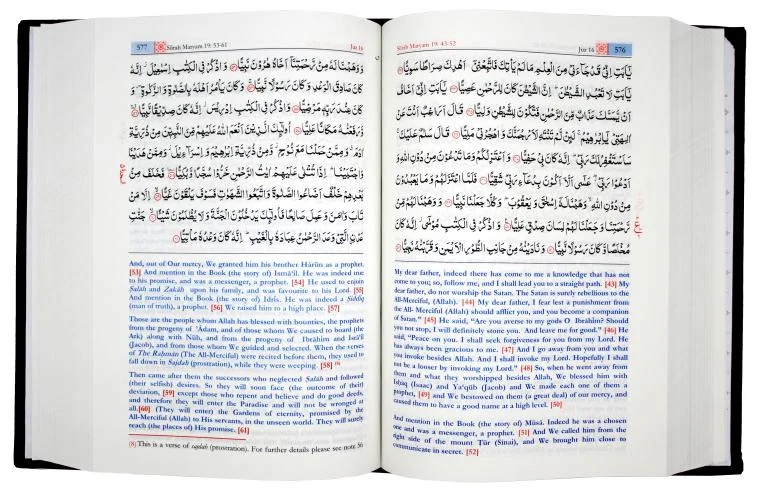 Sūrah Maryam 19: 43-52 Juz 16 576
يٰٓاَبَتِ اِنِّيْ قَدْ جَآءَنِيْ مِنَ الْعِلْمِ مَا لَمْ يَاْتِكَ فَاتَّبِعْنِيْٓ اَهْدِكَ صِرَاطًا سَوِيًّا ۝
يٰٓاَبَتِ لَا تَعْبُدِ الشَّيْطٰنَ ؕ اِنَّ الشَّيْطٰنَ كَانَ لِلرَّحْمٰنِ عَصِيًّا ۝ يٰٓاَبَتِ اِنِّيْٓ اَخَافُ
اَنْ يَّمَسَّكَ عَذَابٌ مِّنَ الرَّحْمٰنِ فَتَكُوْنَ لِلشَّيْطٰنِ وَلِيًّا ۝ قَالَ اَرَاغِبٌ اَنْتَ عَنْ
اٰلِهَتِيْ يٰٓاِبْرٰهِيْمُ ۚ لَئِنْ لَّمْ تَنْتَهِ لَاَرْجُمَنَّكَ وَاهْجُرْنِيْ مَلِيًّا ۝ قَالَ سَلٰمٌ عَلَيْكَ ۚ
سَاَسْتَغْفِرُ لَكَ رَبِّيْ ؕ اِنَّهٗ كَانَ بِيْ حَفِيًّا ۝ وَاَعْتَزِلُكُمْ وَمَا تَدْعُوْنَ مِنْ دُوْنِ اللّٰهِ وَ
اَدْعُوْا رَبِّيْ ۖ عَسٰٓى اَلَّآ اَكُوْنَ بِدُعَآءِ رَبِّيْ شَقِيًّا ۝ فَلَمَّا اعْتَزَلَهُمْ وَمَا يَعْبُدُوْنَ
مِنْ دُوْنِ اللّٰهِ ۙ وَهَبْنَا لَهٗٓ اِسْحٰقَ وَيَعْقُوْبَ ؕ وَكُلًّا جَعَلْنَا نَبِيًّا ۝ وَوَهَبْنَا لَهُمْ مِّنْ
رَّحْمَتِنَا وَجَعَلْنَا لَهُمْ لِسَانَ صِدْقٍ عَلِيًّا ۝ وَاذْكُرْ فِي الْكِتٰبِ مُوْسٰٓى ؗ اِنَّهٗ كَانَ
مُخْلَصًا وَّكَانَ رَسُوْلًا نَّبِيًّا ۝ وَنَادَيْنٰهُ مِنْ جَانِبِ الطُّوْرِ الْاَيْمَنِ وَقَرَّبْنٰهُ نَجِيًّا ۝
My dear father, indeed there has come to me a knowledge that has not
come to you; so, follow me, and I shall lead you to a straight path. [43] My
dear father, do not worship the Satan. The Satan is surely rebellious to the
All-Merciful, (Allah). [44] My dear father, I fear lest a punishment from
the All-Merciful (Allah) should afflict you, and you become a companion
of Satan.” [45] He said, “Are you averse to my gods O Ibrāhīm? Should
you not stop, I will definitely stone you. And leave me for good.” [46] He
said, “Peace on you. I shall seek forgiveness for you from my Lord. He
has always been gracious to me. [47] And I go away from you and what
you invoke besides Allah. And I will invoke my Lord. Hopefully I shall
not be a looser by invoking my Lord.” [48] So, when he went away from
them and what they worshipped besides Allah, We blessed him with
Isḥāq (Isaac) and Ya‘qūb (Jacob) and We made each one of them a
prophet, [49] and We bestowed on them (a great deal) of our mercy, and
caused them to have a good name at a high level. [50]
And mention in the Book (the story of) Mūsā. Indeed he was a chosen
one and was a messenger, a prophet. [51] And We called him from the
right side of the mount Ṭūr (Sinai), and We brought him close to
communicate in secret. [52]
577 Sūrah Maryam 19: 53-61 Juz 16
وَوَهَبْنَا لَهٗ مِنْ رَّحْمَتِنَآ اَخَاهُ هٰرُوْنَ نَبِيًّا ۝ وَاذْكُرْ فِي الْكِتٰبِ اِسْمٰعِيْلَ ؗ اِنَّهٗ
كَانَ صَادِقَ الْوَعْدِ وَكَانَ رَسُوْلًا نَّبِيًّا ۝ وَكَانَ يَاْمُرُ اَهْلَهٗ بِالصَّلٰوةِ وَالزَّكٰوةِ ۪ وَ
كَانَ عِنْدَ رَبِّهٖ مَرْضِيًّا ۝ وَاذْكُرْ فِي الْكِتٰبِ اِدْرِيْسَ ؗ اِنَّهٗ كَانَ صِدِّيْقًا نَّبِيًّا ۝
وَّرَفَعْنٰهُ مَكَانًا عَلِيًّا ۝ اُولٰٓئِكَ الَّذِيْنَ اَنْعَمَ اللّٰهُ عَلَيْهِمْ مِّنَ النَّبِيّٖنَ مِنْ ذُرِّيَّةِ
اٰدَمَ ۗ وَمِمَّنْ حَمَلْنَا مَعَ نُوْحٍ ؗ وَّمِنْ ذُرِّيَّةِ اِبْرٰهِيْمَ وَاِسْرَآءِيْلَ ؗ وَمِمَّنْ هَدَيْنَا
وَاجْتَبَيْنَا ؕ اِذَا تُتْلٰى عَلَيْهِمْ اٰيٰتُ الرَّحْمٰنِ خَرُّوْا سُجَّدًا وَّبُكِيًّا ۝ فَخَلَفَ مِنْۢ
بَعْدِهِمْ خَلْفٌ اَضَاعُوا الصَّلٰوةَ وَاتَّبَعُوا الشَّهَوٰتِ فَسَوْفَ يَلْقَوْنَ غَيًّا ۝ اِلَّا مَنْ
تَابَ وَاٰمَنَ وَعَمِلَ صَالِحًا فَاُولٰٓئِكَ يَدْخُلُوْنَ الْجَنَّةَ وَلَا يُظْلَمُوْنَ شَيْـًٔا ۝ جَنّٰتِ
عَدْنِ ِۨالَّتِيْ وَعَدَ الرَّحْمٰنُ عِبَادَهٗ بِالْغَيْبِ ؕ اِنَّهٗ كَانَ وَعْدُهٗ مَاْتِيًّا ۝
And, out of Our Mercy, We granted him his brother Hārūn as a prophet.
[53] And mention in the Book (the story of) Ismā‘īl. He was indeed true
to his promise, and was a messenger, a prophet. [54] He used to enjoin
Ṣalāh and Zakāh upon his family, and was favourite to his Lord. [55]
And mention in the Book (the story of) Idrīs. He was indeed a Ṣiddīq
(man of truth), a prophet. [56] We raised him to a high place. [57]
Those are the people whom Allah has blessed with bounties, the prophets
from the progeny of ’Ādam, and of those whom We caused to board (the
Ark) along with Nūḥ, and from the progeny of Ibrāhīm and Isrā’īl
(Jacob), and from those whom We guided and selected. When the verses
of The Raḥmān (The All-Merciful) were recited before them, they used to
fall down in Sajdah (prostration), while they were weeping. [58] (8)
Then came after them the successors who neglected Ṣalāh and followed
(their selfish) desires. So they will soon face (the outcome of their)
deviation, [59] except those who repent and believe and do good deeds,
and therefore they will enter the Paradise and will not be wronged at
all.[60] (They will enter) the Gardens of eternity, promised by the
All-Merciful (Allah) to His servants, in the unseen world. They will surely
reach (the places of) His promise. [61]
(8) This is a verse of sajdah (prostration). For further details please see note 56